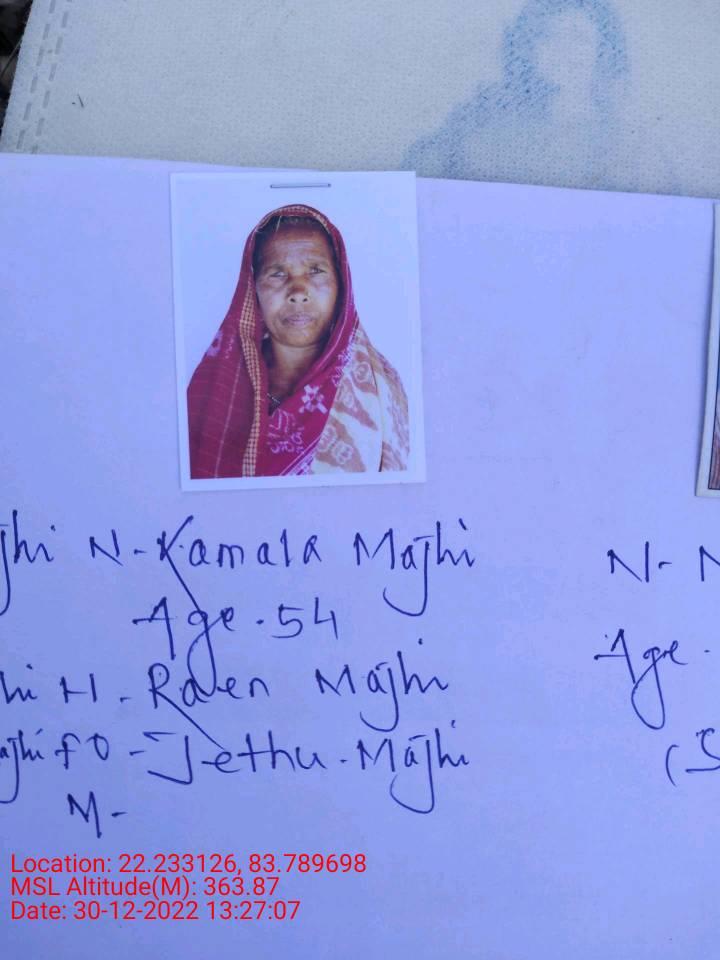 jhi N-Kamala Majhi N- N
Age-54 Age-
hi H-Raen Majhi
ajhi FO-Jethu-Majhi (S
M-
Location: 22.233126, 83.789698
MSL Altitude(M): 363.87
Date: 30-12-2022 13:27:07